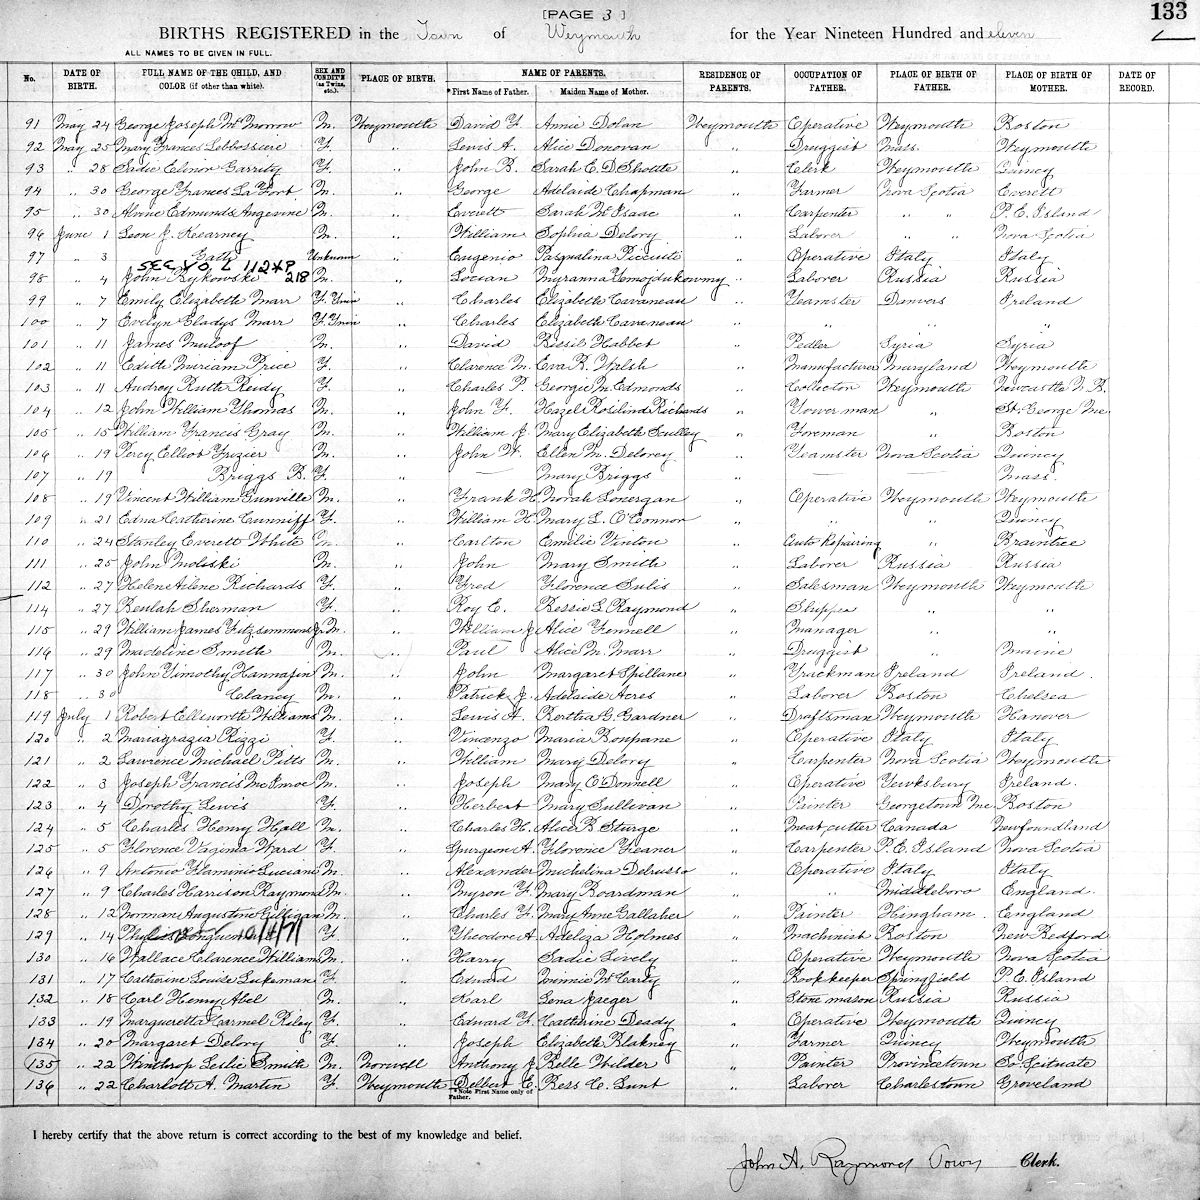 [PAGE 3]
133
BIRTHS REGISTERED in the Town of Weymouth for the Year Nineteen Hundred and eleven
ALL NAMES TO BE GIVEN IN FULL.
No. DATE OF BIRTH. FULL NAME OF THE CHILD, AND COLOR (if other than white). SEX AND CONDIT'N (as Twins, etc.). PLACE OF BIRTH. NAME OF PARENTS. *First Name of Father. Maiden Name of Mother. RESIDENCE OF PARENTS. OCCUPATION OF FATHER. PLACE OF BIRTH OF FATHER. PLACE OF BIRTH OF MOTHER. DATE OF RECORD.
91 May 24 George Joseph McMorrow M. Weymouth David F. Annie Dolan Weymouth Operative Weymouth Boston
92 May 25 Mary Frances Lebbossiere F. " Lewis A. Alice Donovan " Druggist Mass. Weymouth
93 " 28 Sadie Elinor Garrity F. " John B. Sarah E. D. Shottle " Clerk Weymouth Quincy
94 " 30 George Frances La Fort M. " George Adelaide Chapman " Farmer Nova Scotia Everett
95 " 30 Alvine Edmunds Angevine M. " Everett Sarah McIsaac " Carpenter " " P. E. Island
96 June 1 Leon J. Kearney M. " William Sophia Delory " Laborer " " Nova Scotia
97 " 3 Unknown " Eugenio Pasqualina " Operative Italy Italy
SEE VOL 112 * P 218
98 " 4 John Bykowski M. " Locian " Laborer Russia Russia
99 " 7 Emily Elizabeth Marr F. Twin " Charles Elizabeth Cavaneau " Teamster Danvers Ireland
100 " 7 Evelyn Gladys Marr F. Twin " Charles Elizabeth Cavaneau " " " "
101 " 11 James Muloof M. " David Bessil Habbet " Pedler Syria Syria
102 " 11 Edith Miriam Price F. " Clarence M. Eva B. Walsh " Manufacturer Maryland Weymouth
103 " 11 Audrey Ruth Reidy F. " Charles P. Georgie M. Edmonds " Collector Weymouth Newcastle N. B.
104 " 12 John William Thomas M. " John F. Hazel Rosilind Richards " Tower man " St. George Me.
105 " 15 William Francis Gray M. " William J. Mary Elizabeth Sculley " Foreman " Boston
106 " 19 Percy Elliot Frizier M. " John W. Ellen M. Delorey " Teamster Nova Scotia Quincy
107 " 19 Briggs B. F. " — Mary Briggs " — — Mass.
108 " 19 Vincent William Gunville M. " Frank H. Norah Lonergan " Operative Weymouth Weymouth
109 " 21 Edna Catherine Cunniff F. " William H. Mary L. O'Connor " " " Quincy
110 " 24 Stanley Everett White M. " Carlton Emilie Vinton " Auto Repairing " Braintree
111 " 25 John Moliski M. " John Mary Smith " Laborer Russia Russia
112 " 27 Helene Arlene Richards F. " Fred Florence Sulis " Salesman Weymouth Weymouth
114 " 27 Beulah Sherman F. " Roy E. Bessie L. Raymond " Shipper " "
115 " 29 William James Fitzsimmons Jr. M. " William J. Alice Fennell " Manager " "
116 " 29 Madeline Smith M. " Paul Alice M. Marr " Druggist " Maine
117 " 30 John Timothy Hannafin M. " John Margaret Spillane " Trickman Ireland Ireland.
118 " 30 Clancy M. " Patrick J. Adelaide Acres " Laborer Boston Chelsea
119 July 1 Robert Ellsworth Williams M. " Lewis H. Bertha G. Gardner " Draftsman Weymouth Hanover
120 " 2 Mariagrazia Rizzi F. " Vincenzo Maria Bonpane " Operative Italy Italy
121 " 2 Lawrence Michael Pitts M. " William Mary Delory " Carpenter Nova Scotia Weymouth
122 " 3 Joseph Francis McEnroe M. " Joseph Mary O'Donnell " Operative Tewksbury Ireland.
123 " 4 Dorothy Lewis F. " Herbert Mary Sullivan " Painter Georgetown Me Boston
124 " 5 Charles Henry Hall M. " Charles H. Alice B. Sturge " Meat cutter Canada Newfoundland
125 " 5 Florence Virginia Ward F. " Spurgeon A. Florence Feaner " Carpenter P. E. Island Nova Scotia
126 " 9 Antonio Flaminio Luciani M. " Alexander Michelina Delrusso " Operative Italy Italy
127 " 9 Charles Harrison Raymond M. " Myron F. Mary Boardman " " Middleboro England.
128 " 12 Norman Augustine Gilligan M. " Charles F. Mary Anne Gallaher " Painter Hingham England
129 " 14 F. " Theodore A. Adeliza Holmes " Machinist Boston New Bedford
130 " 16 Wallace Clarence Williams M. " Harry Sadie Lively " Operative Weymouth Nova Scotia
131 " 17 Catherine Louise Lukeman F. " Edward Winnie McCarty " Bookkeeper Springfield P. E. Island
132 " 18 Carl Henry Abel M. " Karl Lena Jaeger " Stone mason Russia Russia
133 " 19 Margueretta Carmel Riley F. " Edward F. Katherine Deady " Operative Weymouth Quincy
134 " 20 Margaret Delory F. " Joseph Elizabeth Blakney " Farmer Quincy Weymouth
135 " 22 Winthrop Leslie Smith M. Norwell Anthony J. Belle Wilder " Painter Provincetown So. Scituate
136 " 22 Charlotte A. Martin F. Weymouth Delbert E. Bess C. Lunt " Laborer Charlestown Groveland
*Note First Name only of Father.
I hereby certify that the above return is correct according to the best of my knowledge and belief.
John A. Raymond Town Clerk.